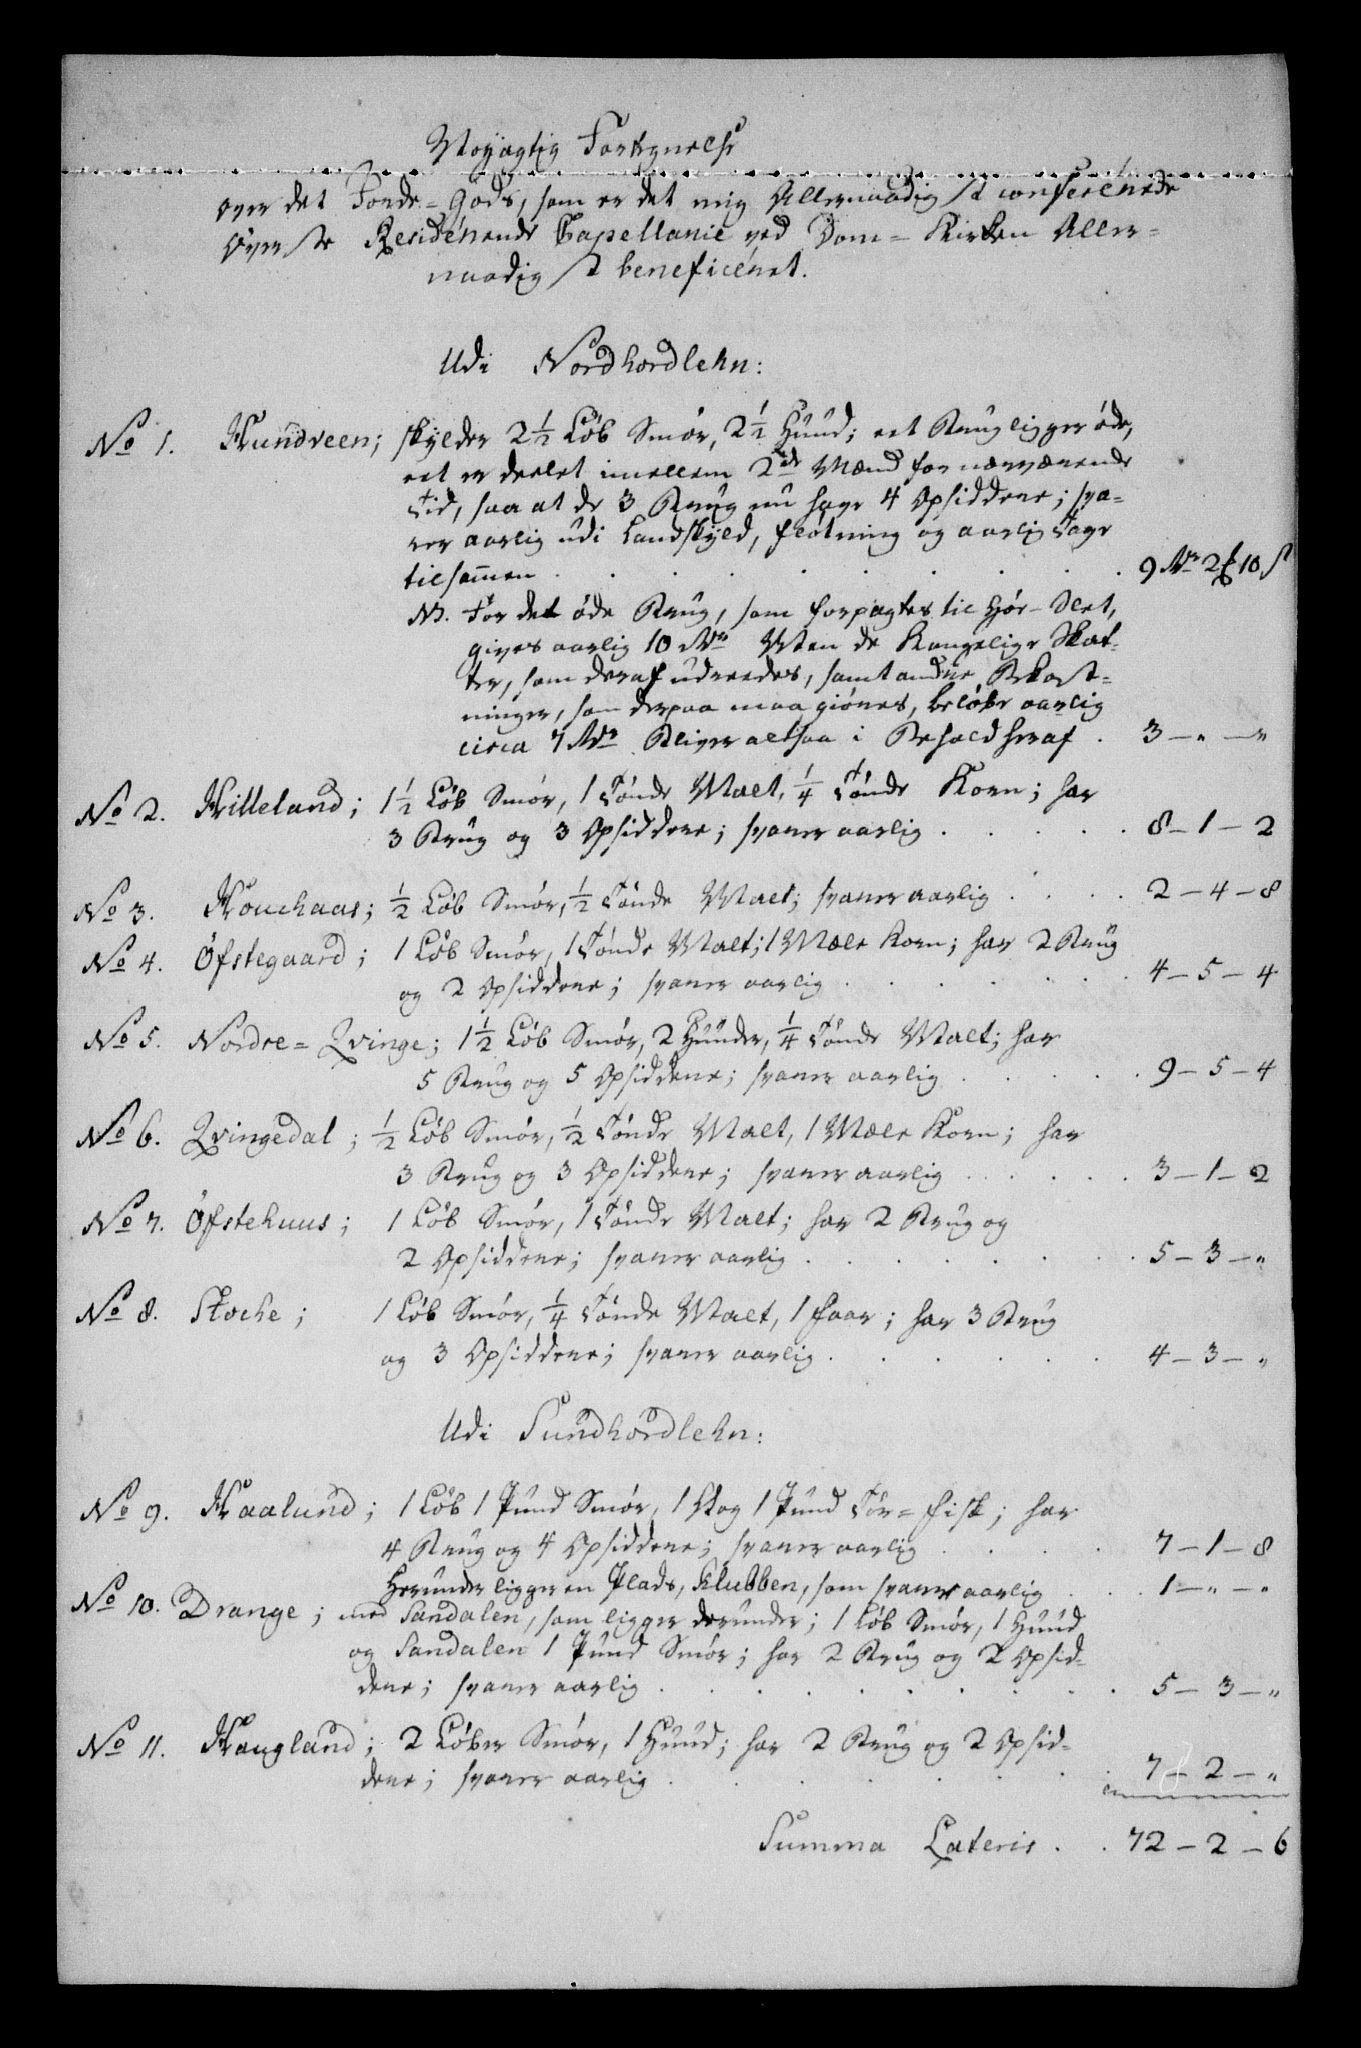 Nöyagtig Fortegnelse
over det Jorde-Gods, som er det mig Allernaadigst conferérede
Øverste Residérende Capellanie ved Dom-Kirken Aller-
naadigst beneficéret.
Udi Nordhordlehn:
No 1. Hundveen; skylder 2 1/2 Løb Smör, 2 1/2 Huud; eet Brug ligger öde,
eet er deelet imellem 2de Mænd for nærværende
Tid, saa at de 3 Brug nu have 4 Opsiddere; sva-
rer aarlig udi Landskyld, fløtning og aarlig Tage
tilsammen . . . . . . . 9 Rdr 2 ₰ 10 s
NB. For det öde Brug, som forpagtes til Hör-Slet,
gives aarlig 10 Rdr Men de Kongelige Skat-
ter, som deraf udreedes, samt andre Bekost-
ninger, som derpaa maa giöres, belöbe aarlig
circa 7 Rdr Bliver altsaa i Behold heraf . 3 — „ — „
No 2. Hilleland; 1 1/2 Løb Smör, 1 Tönde Malt, 1/4 Tönde Korn; har
3 Brug og 3 Opsiddere; svarer aarlig . . . . . 8 — 1 — 2
No 3. Houchaas; 1/2 Løb Smör, 1/2 Tönde Malt; svarer aarlig . . . 2 — 4 — 8
No 4. Öfstegaard; 1 Løb Smör, 1 Tönde Malt; 1 Mæle Korn; har 2 Brug
og 2 Opsiddere; svarer aarlig . . . . . . 4 — 5 — 4
No 5. Nordre = Qvinge; 1 1/2 Løb Smör, 2 Huuder, 1/4 Tönde Malt; har
5 Brug og 5 Opsiddere; svarer aarlig . . . . . 9 — 5 — 4
No 6. Qvingedal; 1/2 Løb Smör, 1/2 Tönde Malt, 1 Mæle Korn; har
3 Brug og 3 Opsiddere; svarer aarlig . . . . . 3 — 1 — 2
No 7. Öfstehuus; 1 Løb Smör, 1 Tönde Malt; har 2 Brug og
2 Opsiddere; svarer aarlig . . . . . . . . 5 — 3 — „
No 8. Stoche; 1 Løb Smör, 1/4 Tönde Malt, 1 Faar; har 3 Brug
og 3 Opsiddere; svarer aarlig . . . . . . 4 — 3 — „
Udi Sundhordlehn:
No 9. Haalund; 1 Løb 1 Pund Smör, 1 Vog 1 Pund Tör = fisk; har
4 Brug og 4 Opsiddere; svarer aarlig . . . . 7 — 1 — 8
Herunder ligger en Plads, Klubben, som svarer aarlig . . 1 — „ — „
No 10. Drange; med Sandalen, som ligger derunder; 1 Løb Smör, 1 Huud
og Sandalen 1 Pund Smör; har 2 Brug og 2 Opsid-
dere; svarer aarlig . . . . . . . . . 5 — 3 — „
No 11. Haugland; 2 Løber Smör, 1 Huud; har 2 Brug og 2 Opsid-
dere; svarer aarlig . . . . . . . . 7 — 2 — „
Summa Lateris . . 72 — 2 — 6